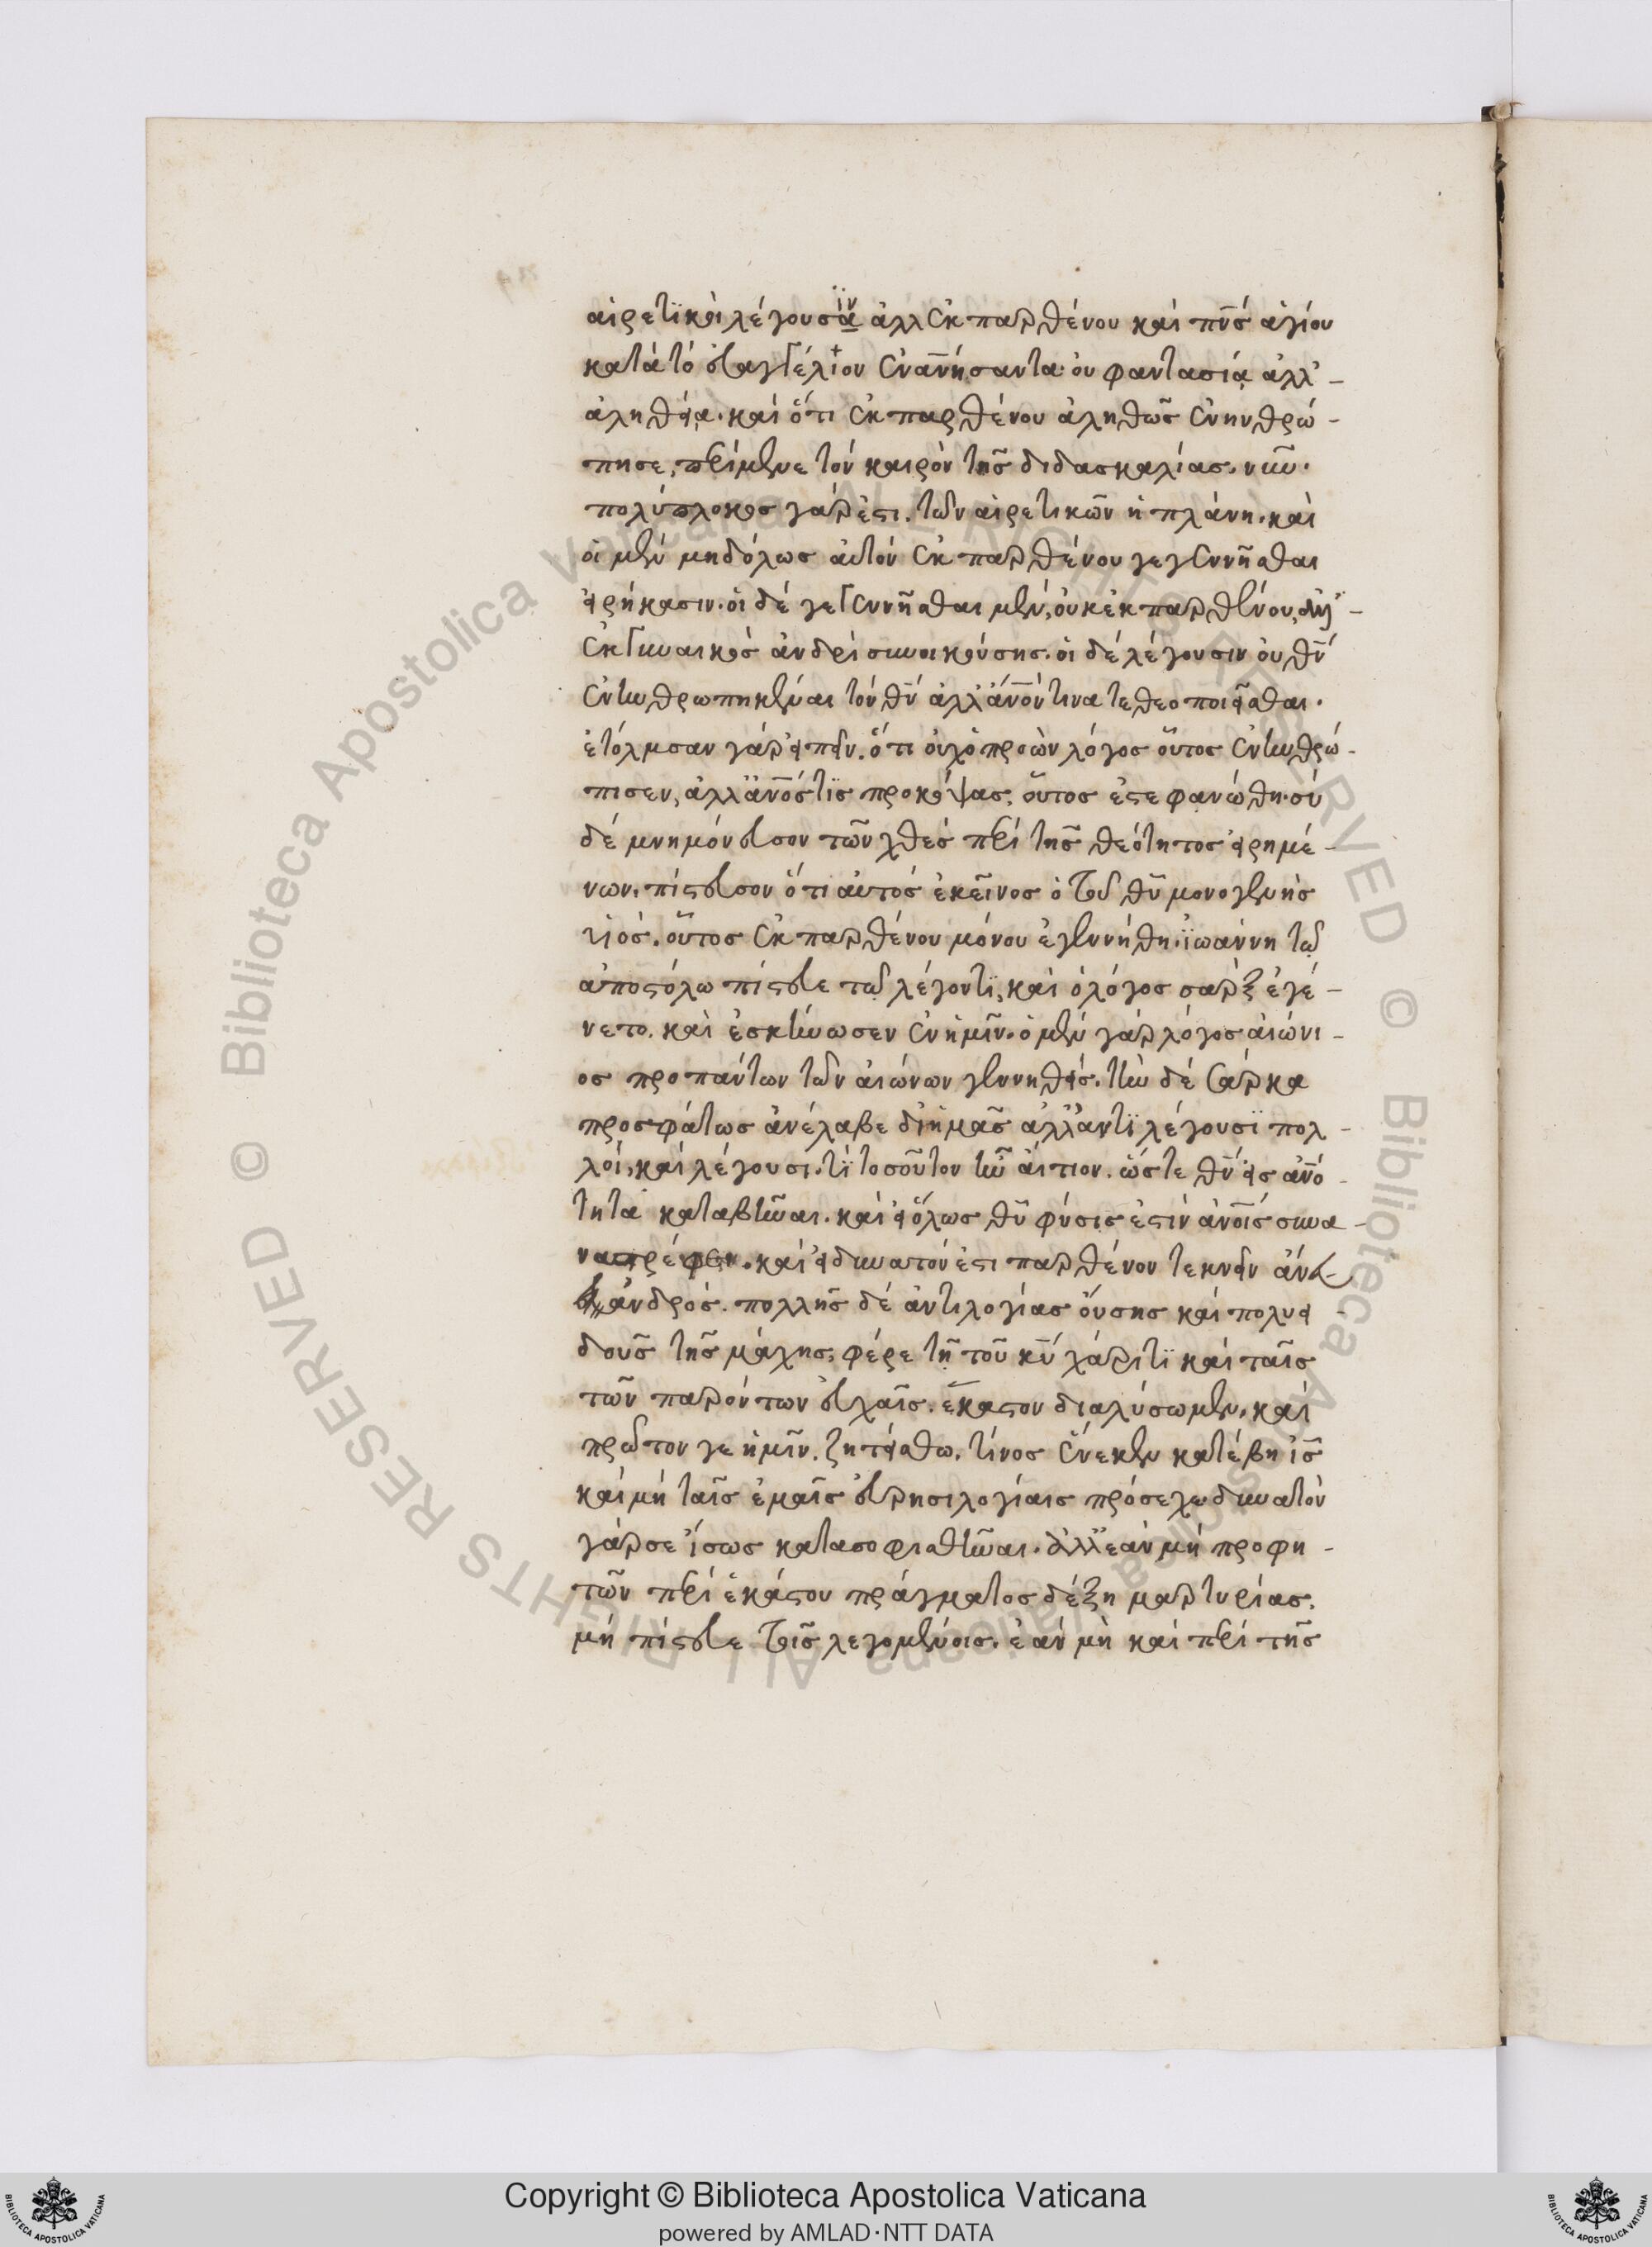 αἱρετϊκοὶ λέγουσϊν ἀλλ ἐκ παρθένου καὶ πν̅ς ἁγίου
κατὰ τὸ ἐυαγγέλιον ἐνα̅νήσαντα· ὀυ φαντασία ἀλλ' -
ἀληθεία. καὶ ὅτι ἐκ παρθένου ἀληθῶς ἐνηνθρώ -
πησε, περίμενε τὸν καιρὸν τῆς διδασκαλίας. νῦν.
πολύπλοκος γάρ ἐστι. τῶν αἱρετικῶν ἡ πλάνη. καὶ
οἱ μὲν μηδόλως ἀυτὸν ἐκ παρθένου γεγεννῆσθαι
εἰρήκασιν. οἱ δὲ γεγεννῆσθαι μὲν, ὀυκ ἐκ παρθένου, ἀλλ' -
ἐκ γυναικὸς ἀνδρὶ συνοικούσης. οἱ δὲ λέγουσιν ὀυ θ̅ν
ἐνηνθρωπηκέναι τὸν θ̅ν ἀλλ' ἄν̅ον τινα τεθεοποιεῖσθαι.
ἐτόλμσαν γὰρ εἰπεῖν. ὅτι ὀυχ ὁ προὼν λόγος οὗτος ἐνηνθρώ -
πισεν, ἀλλ' ἄν̅ος τϊς προκόψας, οὗτος ἐστεφανώθη. σὺ
δὲ μνημόνευσον τῶν χθὲς περὶ τῆς θεότητος εἰρημέ -
νων. πίστευσον ὅτι αὐτὸς ἐκεῖνος ὁ τοῦ θ̅υ μονογενὴς
υἱός. οὗτος ἐκ παρθένου μόνου ἐγεννήθη. ϊωάννη τῶ
ἀποστόλω πίστευε τῶ λέγοντϊ, καὶ ὁ λόγος σὰρξ ἐγέ -
νετο. καὶ ἐσκήνωσεν ἐν ἡμῖν. ὁ μὲν γὰρ λόγος ἀιώνι -
ος προ πάντων τῶν ἀιώνων γεννηθείς. τὴν δὲ σάρκα
προσφάτως ἀνέλαβε δι' ἡμᾶς ἀλλ' ἀντϊλέγουσϊ πολ -
λοί, καὶ λέγουσι. τί τοσοῦτον ἦν ἄιτιον. ὥστε θ̅ν εἰς ἀν̅ό -
τητα καταβῆναι. καὶ εἰ ὅλως θ̅υ φύσις ἐστὶν ἀν̅οις συνα -
ναστρέφειν. καὶ εἰ δυνατόν ἐστι παρθένον τεκνεῖν ἄνευ
ἀνδρός. πολλῆς δὲ ἀντιλογίας ὄυσης καὶ πολυει -
δοῦς τῆς μάχης, φέρε τῇ τοῦ κ̅υ χάριτϊ καὶ ταῖς
τῶν παρόντων ἐυχαῖς. ἕκαστον διαλύσωμεν. καὶ
πρῶτον γε ἡμῖν. ζητείσθω. τίνος ἕνεκεν κατέβη ι̅ς
καὶ μὴ ταῖς ἐμαῖς ἑυρησιλογίαις πρόσεχε· δυνατὸν
γὰρ σε ἴσως κατασοφισθῆναι. ἀλλ' ἐὰν μὴ προφη -
τῶν περὶ ἑκάστου πράγματος δέξη μαρτυρίας.
μὴ πίστευε τοῖς λεγομένοις. ἐὰν μὴ καὶ περὶ τῆς
Copyright © Biblioteca Apostolica Vaticana
powered by AMLAD·NTT DATA